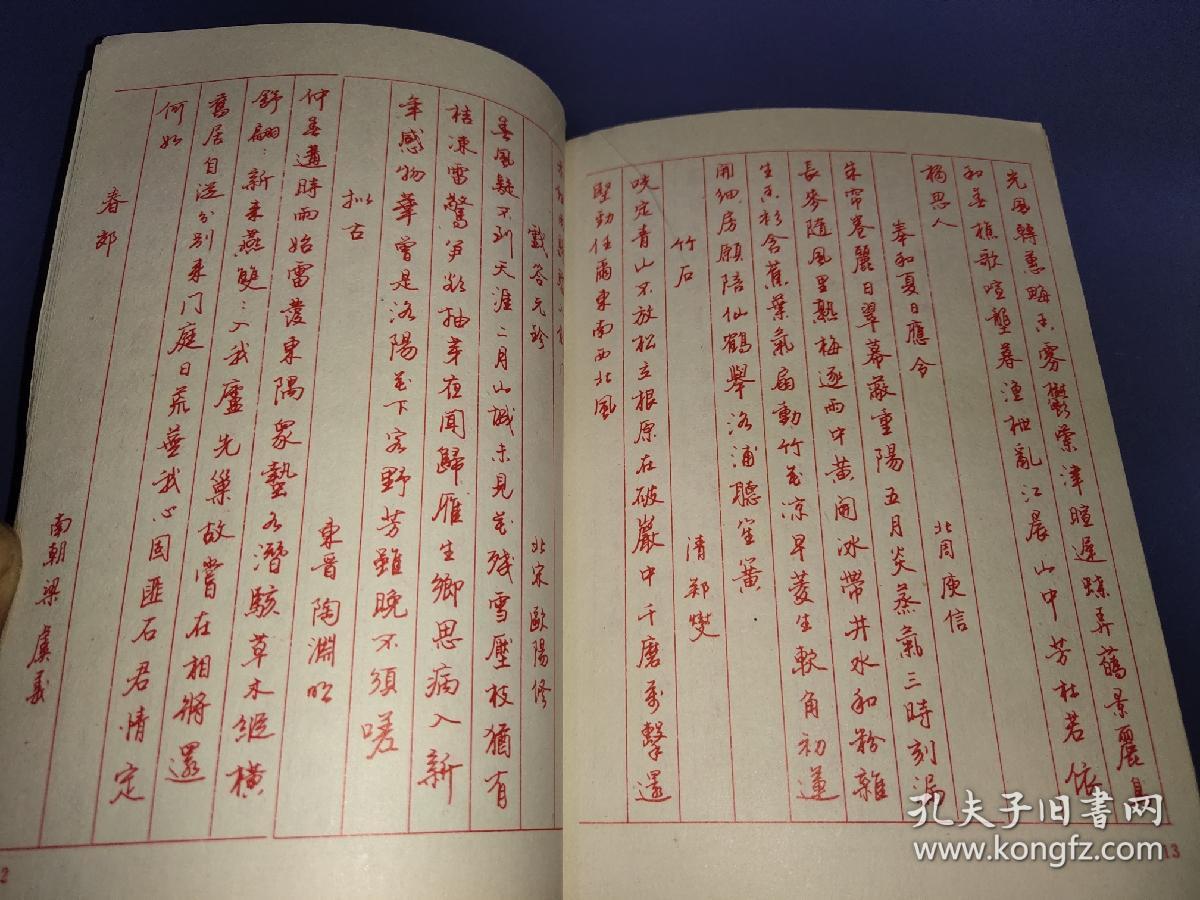 戲答元珍 北宋 歐陽修
春風疑不到天涯二月山城未見花殘雪壓枝猶有
桔凍雷驚笋欲抽芽夜聞歸雁生鄉思病入新
年感物華曾是洛陽花下客野芳雖晚不須嗟
拟古 東晉 陶淵明
仲春遘時雨始雷發東隅衆蟄各潛駭草木縱橫
舒翩:新来燕雙:入我廬先巢故嘗在相將還
舊居自從分別来門庭日荒蕪我心固匪石君情定
何如
春郊 南朝梁 虞羲
12
光風轉蕙晦香雾鬱津暄遲蝶弄蘤景麗鳥
和春樵歌喧壟暮漁枻亂江晨山中芳杜若依
獨思人
奉和夏日應令 北周 庾信
朱帘卷麗日翠幕蔽重陽五月炎蒸氣三時刻漏
長麥隨風里熟梅逐雨中黄開冰帶井水和粉雜
生香衫含蕉葉氣扇動竹花凉早菱生軟角初蓮
開細房願陪仙鶴舉洛浦聽笙簧
竹石 清 鄭燮
咬定青山不放松立根原在破巖中千磨萬擊還
堅勁任爾東南西北風
13
孔夫子旧书网
www.kongfz.com